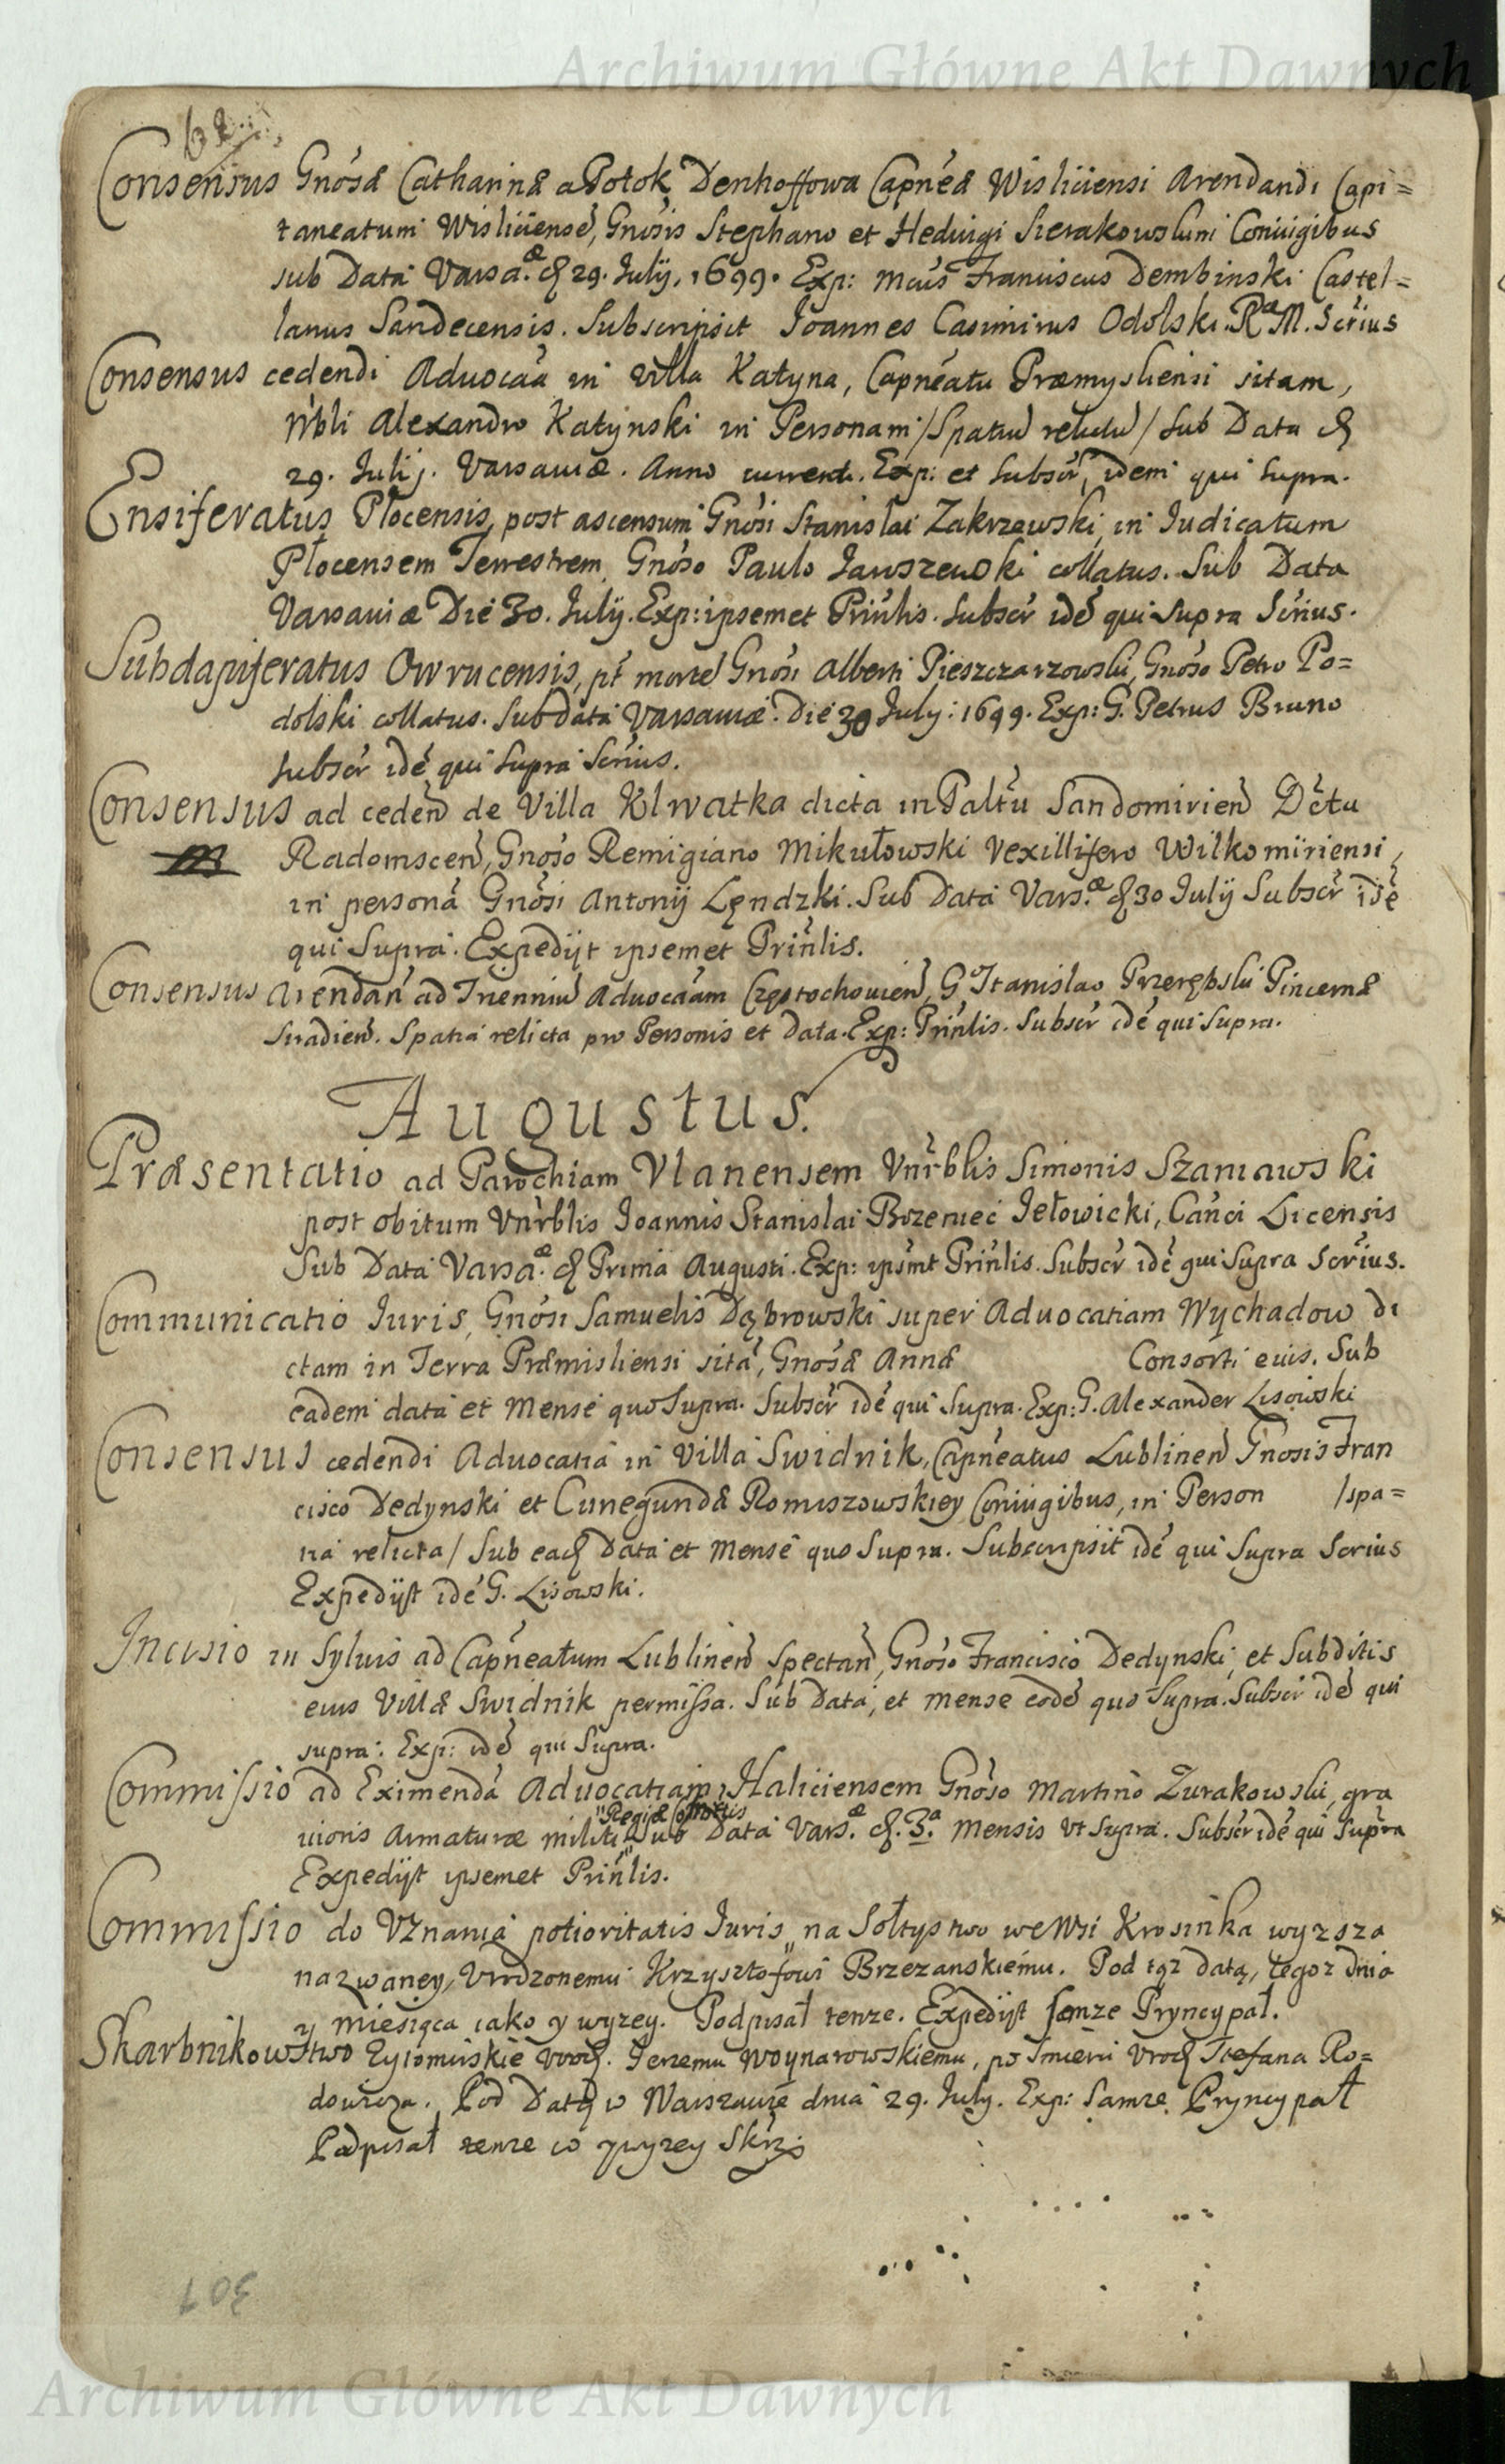 Archiwum Główne Akt Dawnych
62
Consensus Gnosæ Catharinæ a Potok Denhoffowa Capneæ Wisliciensi Arendandi Capi=
taneatum Wisliciense, Gnosis Stephano et Hedvigi Sierakowskim Coniugibus
sub Data Varsa.æ d 29. Julij. 1699. Exp: Mcus Franciscus Dembinski Castel=
lanus Sandecensis. Subscripsit Joannes Casimirus Odolski. Ræ M. Scrius
Consensus cedendi Aduocaa in villa Katyna, Capneatu Præmysliensi sitam,
Nbli Alexandro Katynski in Personam /Spatiu relictu/ sub Data d
29. Julij. Varsauiæ. Anno currenti. Exp: et subscr, idem qui supra.
Ensiferatus Plocensis, post ascensum Gnosi Stanislai Zakrzewski, in Iudicatum
Plocensem Terrestrem, Gnoso Paulo Jawszewski collatus. Sub Data
Varsauiæ Die 30. Julij. Exp: ipsemet Prinlis. subscr ide qui supra Scrius.
Subdapiferatus Owrucensis, pt morte Gnosi Alberti Pieszczarzowski, Gnoso Petro Po=
dolski collatus. Sub data Varsauiæ. Die 30 July: 1699. Exp: G. Petrus Bruno
subscr ide qui supra Scrius.
Consensus ad ceden de Villa Klwatka dicta in Paltu Sandomirien Dctu
Radomscen, Gnoso Remigiano Mikułowski Vexillifero Wilkomiriensi,
in persona Gnosi Antonij Lędzki. Sub Data Vars.æ d 30 July Subscr ide
qui Supra. Expedijt ipsemet Prinlis.
Consensus Arendan ad Trienniu Aduocaam Częstochouien, Go Stanislao Przerębski Pincernæ
Siradien. Spatia relicta pro Personis et Data. Exp: Prinlis. Subscr ide qui supra.
Augustus.
Præsentatio ad Parochiam Vlanensem Vnrblis Simonis Szaniawski
post obitum Vnrblis Joannis Stanislai Brzemiec Jełowicki, Canci Licensis
Sub Data Varsa.æ d Prima Augusti. Exp: ipsmt Prinlis. Subscr ide qui supra Scrius.
Communicatio Juris, Gnosi Samuelis Dąbrowski super Aduocatiam Wychadow di
ctam in Terra Præmisliensi sita, Gnosæ Annæ Consorti eius. Sub
eadem data et Mense quo Supra. Subscr ide qui Supra. Exp: G. Alexander Lisowski
Consensus cedendi Aduocatia in Villa Swidnik, Capneatus Lublinen Gnosis Fran
cisco Dedynski et Cunegundæ Romiszowskiey Coniugibus, in Person /spa=
tia relicta/ Sub ead Data et Mense quo Supra. Subscripsit ide qui supra Scrius
Expedijt ide G. Lisowski.
Incisio in Syluis ad Capneatum Lublinen Spectan, Gnoso Francisco Dedynski, et Subditis
eius Villæ Swidnik permissa. Sub Data, et mense eode quo Supra. Subscr ide qui
supra. Exp: ide qui Supra.
Commissio ad Eximenda Aduocatiam Haliciensem Gnoso Martino Zurakowski, gra
Regiæ Cohortis
uioris Armaturæ militi Sub Data Vars.æ d. 3.a Mensis vt Supra. Subscr ide qui supra
Expedijt ipsemet Prinlis.
Commissio do Vznania potioritatis Juris, na Sołtystwo we Wsi Krosinka wyzsza
nazwaney, Vrodzonemu Krzysztofowi Brzezanskiemu. Pod tąz datą, tegoz dnia
y miesiąca iako y wyzey. Podpisał tenze. Expedijt samze Pryncypał.
Skarbnikowstwo Zytomirskie Vrod. Jerzemu Woynarowskiemu, po smierci Vrod Stefana Ro=
dowicza. Pod Datą w Warszawie dnia 29. July. Exp: Samze Pryncypał
Podpisał tenze co y wyzey Skrz
301
Archiwum Główne Akt Dawnych